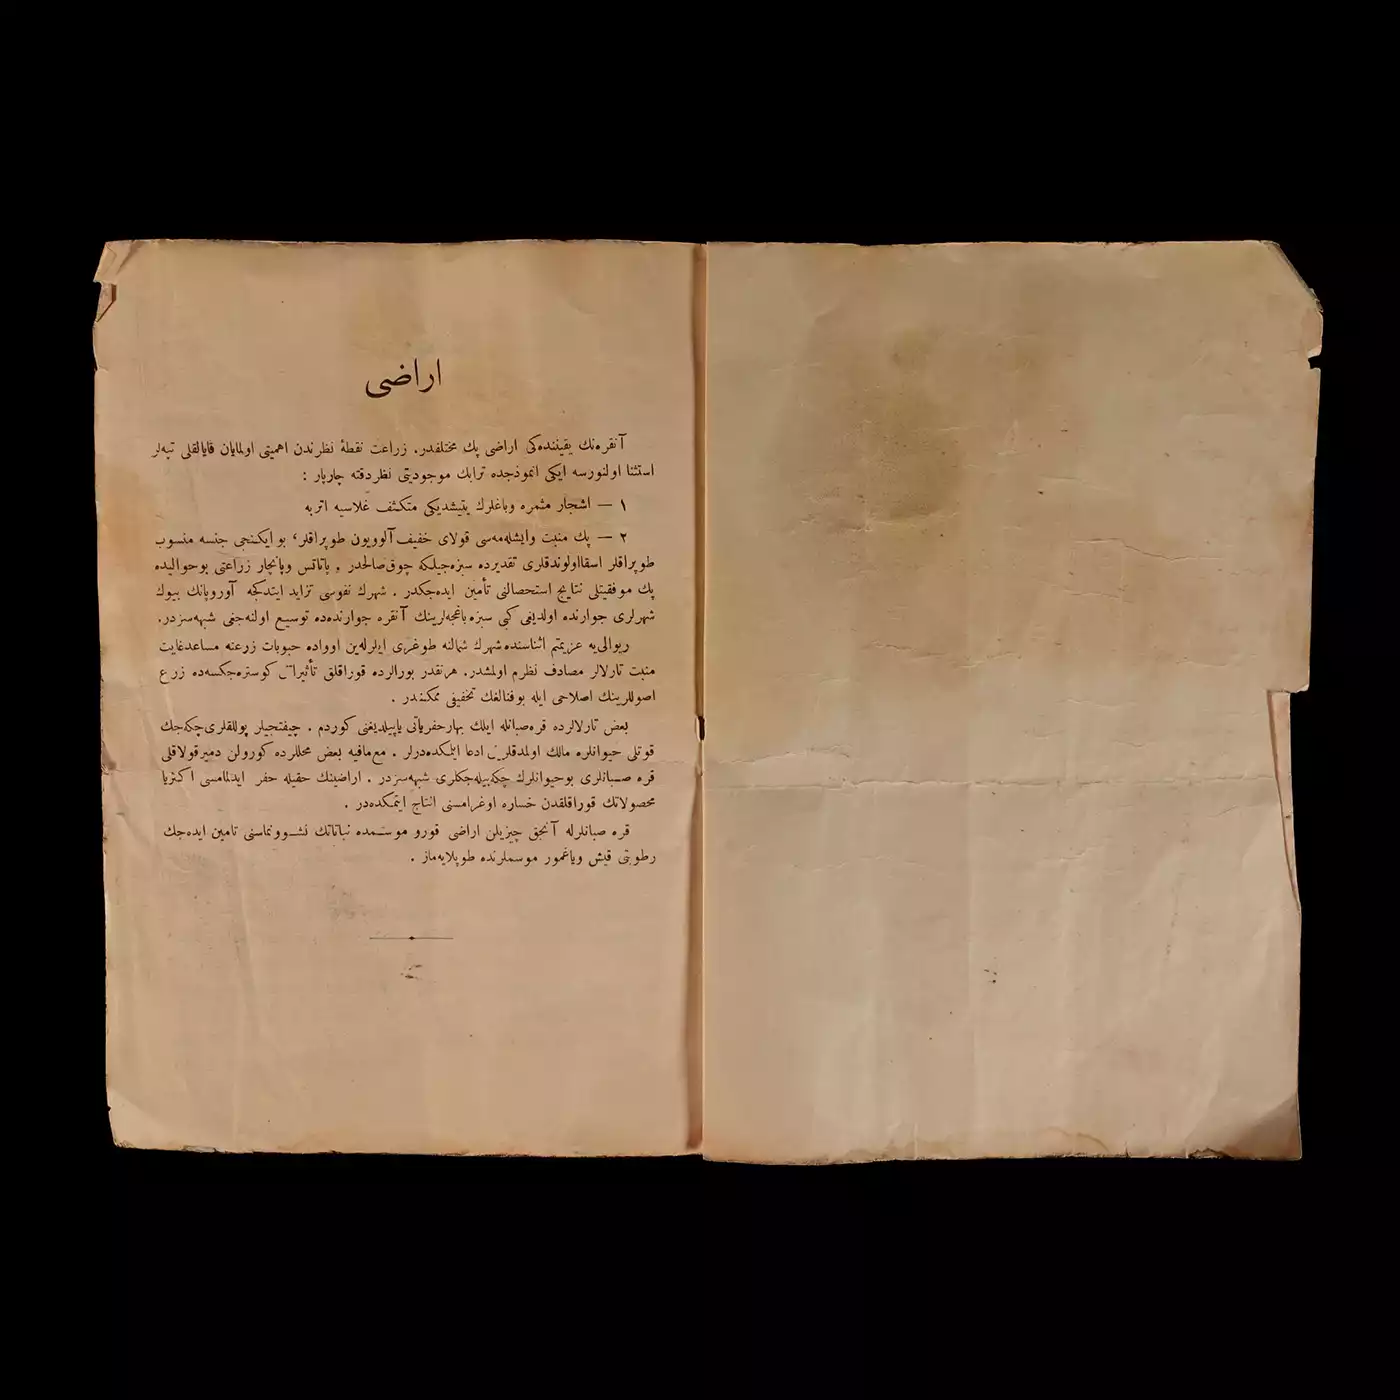 اراضی
آنقره‌نك یقیننده‌کی اراضی پك مختلفدر. زراعت نقطهٔ نظرندن اهمیتی اولمایان قایالقلی تپه‌لر
استثنا اولنورسه ایکی انموذجده ترابك موجودیتی نظردقته چارپار :
۱ — اشجار مثمره وباغلرك یتیشدیکی متکثف غلاسیه اتربه
۲ — پك منبت وایشله‌مه‌سی قولای خفیف آلوویون طوپراقلر، بو ایکنجی جنسه منسوب
طوپراقلر اسقااولوندقلری تقدیرده سبزه‌جیلکه چوق‌صالحدر . پاتاتس وپانچار زراعتی بوحوالیده
پك موفقیتلی نتایج استحصالنی تأمین ایده‌جکدر . شهرك نفوسی تزاید ایتدکجه آوروپانك بیوك
شهرلری جوارنده اولدیغی کبی سبزه‌باغچه‌لرینك آنقره جوارنده‌ده توسیع اولنه‌جغی شبهه‌سزدر.
ریوالی‌یه عزیمتم اثناسنده‌شهرك شمالنه طوغری ایلرله‌ین اوواده حبوبات زرعنه مساعدغایت
منبت تارلالر مصادف نظرم اولمشدر. هرنقدر بورالرده قوراقلق تأثیراتی کوستره‌جکسه‌ده زرع
اصوللرینك اصلاحی ایله بوفنالغك تخفیفی ممکندر .
بعض تارلالرده قره‌صبانله ایلك بهارحفریاتی یاپیلدیغنی کوردم . چیفتجیلر پوللقلری‌چکه‌جك
قوتلی حیوانلره مالك اولمدقلرینی ادعا ایتمکده‌درلر . مع‌مافیه بعض محللرده کورولن دمیرقولاقلی
قره صبانلری بوحیوانلرك چکه‌بیله‌جکلری شبهه‌سزدر . اراضینك حقیله حفر ایدلمامسی اکثریا
محصولاتك قوراقلقدن خساره اوغرامسنی انتاج ایتمکده‌در .
قره صبانلرله آنجق چیزیلن اراضی قورو موسمده نباتاتك نشوونماسنی تامین ایده‌جك
رطوبتی قیش ویاغمور موسملرنده طوپلایه‌ماز .